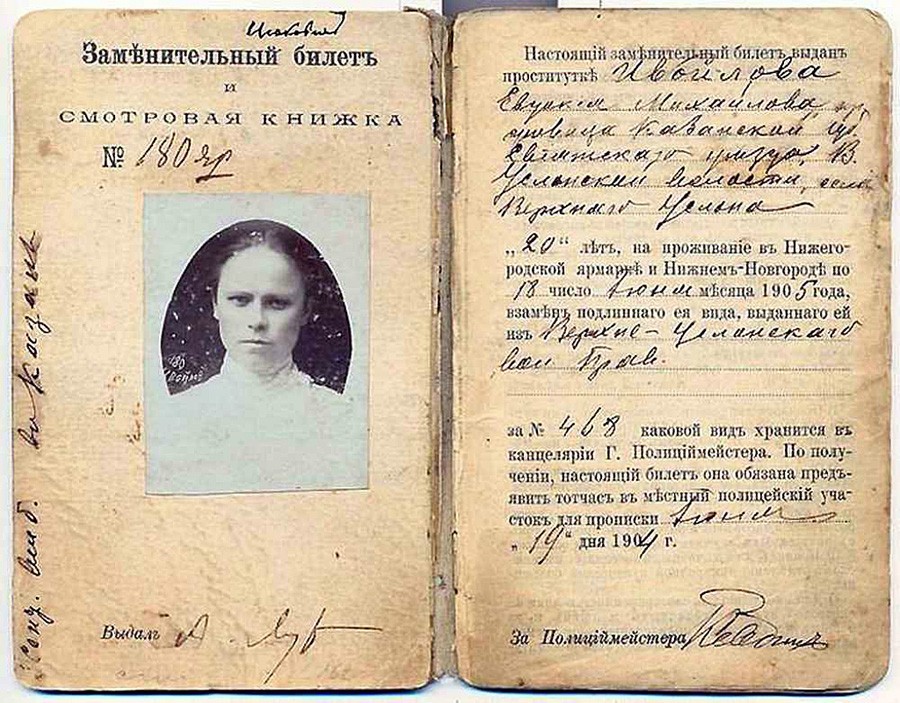 Замѣнительный билетъ
и
СМОТРОВАЯ КНИЖКА
№ 180 яр
180
Выдалъ А.
въ Казань
Настоящій замѣнительный билетъ выданъ
проституткѣ Ивойлова
Евдокія Михайлова
Казанской губ
уѣзда, В.
Услонской волости, села
Верхняго Услона
„20“ лѣтъ, на проживаніе въ Нижего-
родской ярмаркѣ и Нижнемъ-Новгородѣ по
18 число Іюня мѣсяца 1905 года,
взамѣнъ подлиннаго ея вида, выданнаго ей
изъ Верхне-Услонскаго
вол Прав.
за № 468 каковой видъ хранится въ
канцеляріи Г. Полиціймейстера. По полу-
ченіи, настоящій билетъ она обязана предъ-
явить тотчасъ въ мѣстный полицейскій уча-
стокъ для прописки Іюня
„19“ дня 1904 г.
За Полиціймейстера